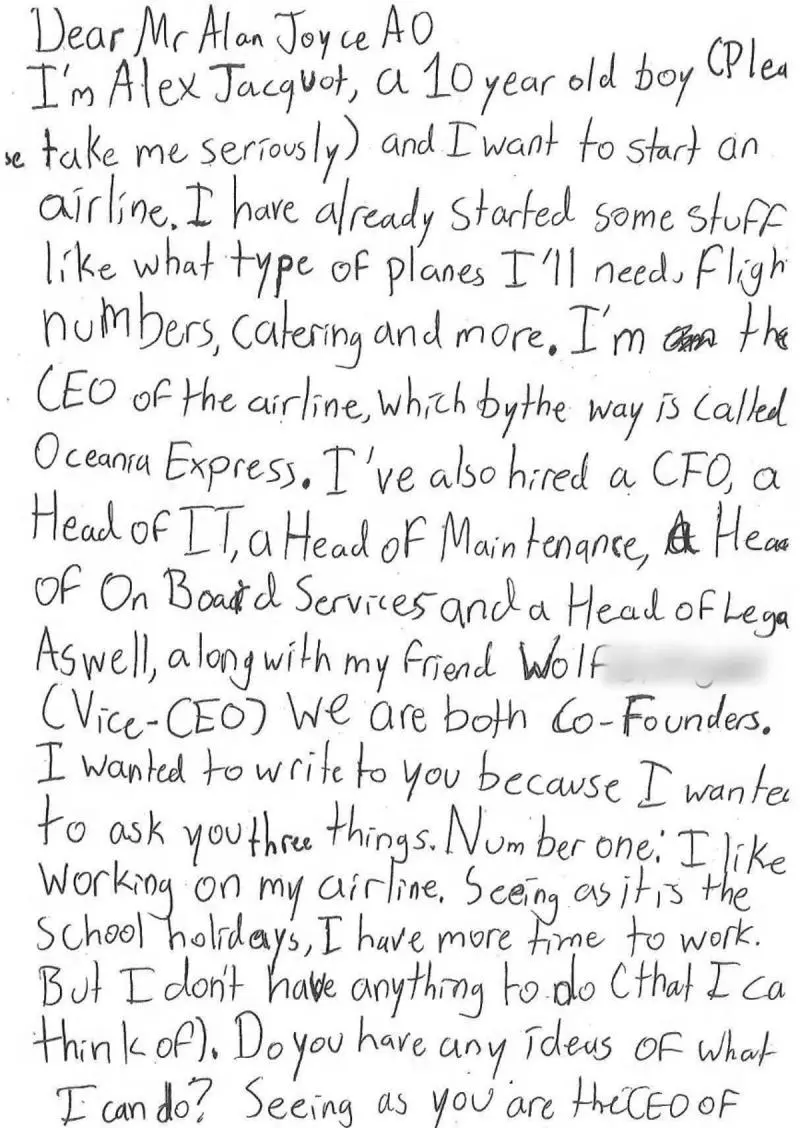 Dear Mr Alan Joyce AO
I'm Alex Jacquot, a 10 year old boy (Plea
se take me seriously) and I want to start an
airline. I have already started some stuff
like what type of planes I'll need, fligh
numbers, catering and more. I'm the
CEO of the airline, which by the way is called
Oceania Express. I've also hired a CFO, a
Head of IT, a Head of Maintenance, A Hea
of On Board Services and a Head of Lega
Aswell, along with my friend Wolf
(Vice-CEO) We are both Co-Founders.
I wanted to write to you because I wanted
to ask you three things. Number one: I like
working on my airline. Seeing as it is the
school holidays, I have more time to work.
But I don't have anything to do (that I ca
think of). Do you have any ideas of what
I can do? Seeing as you are the CEO of